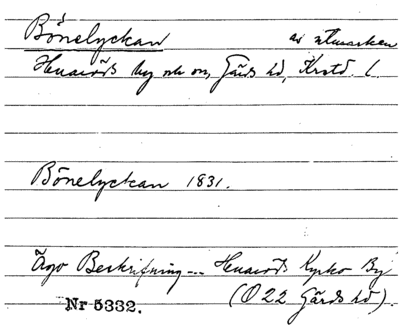 Bönelyckan av utmarken
Huaröds by och sn, Gärds hd, Krstd. l.
Bönelyckan 1831.
Ägo Beskrifning --- Huaröds Kyrko By
Nr 5332. (O 22 Gärds hd).